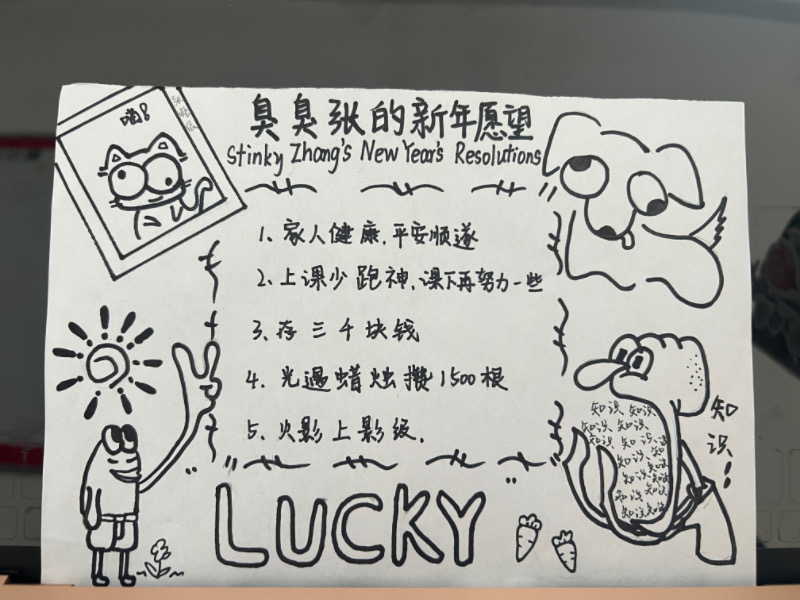 臭臭张的新年愿望
Stinky Zhang's New Year's Resolutions
喵!
1、家人健康,平安顺遂
2、上课少跑神,课下再努力一些
3、存三千块钱
4、光遇蜡烛攒1500根
5、火影上影级.
LUCKY
知识!
知识 知识
知识 知识
知识 知识
知识 知识
知识 知识
知识 知识
知识 知识